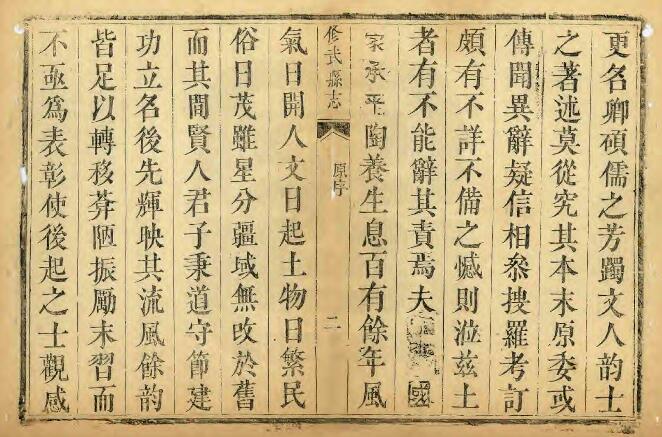 更名卿碩儒之芳躅文人韵士
之著述莫從究其本末原委或
傳聞異辭疑信相叅搜羅考訂
頗有不詳不備之憾則涖茲土
者有不能辭其責焉夫國
家承平陶養生息百有餘年風
修武縣志
原序
二
氣日開人文日起土物日繁民
俗日茂雖星分疆域無改於舊
而其間賢人君子秉道守節建
功立名後先輝映其流風餘韵
皆足以轉移葊陋振勵末習而
不亟為表彰使後起之士觀感